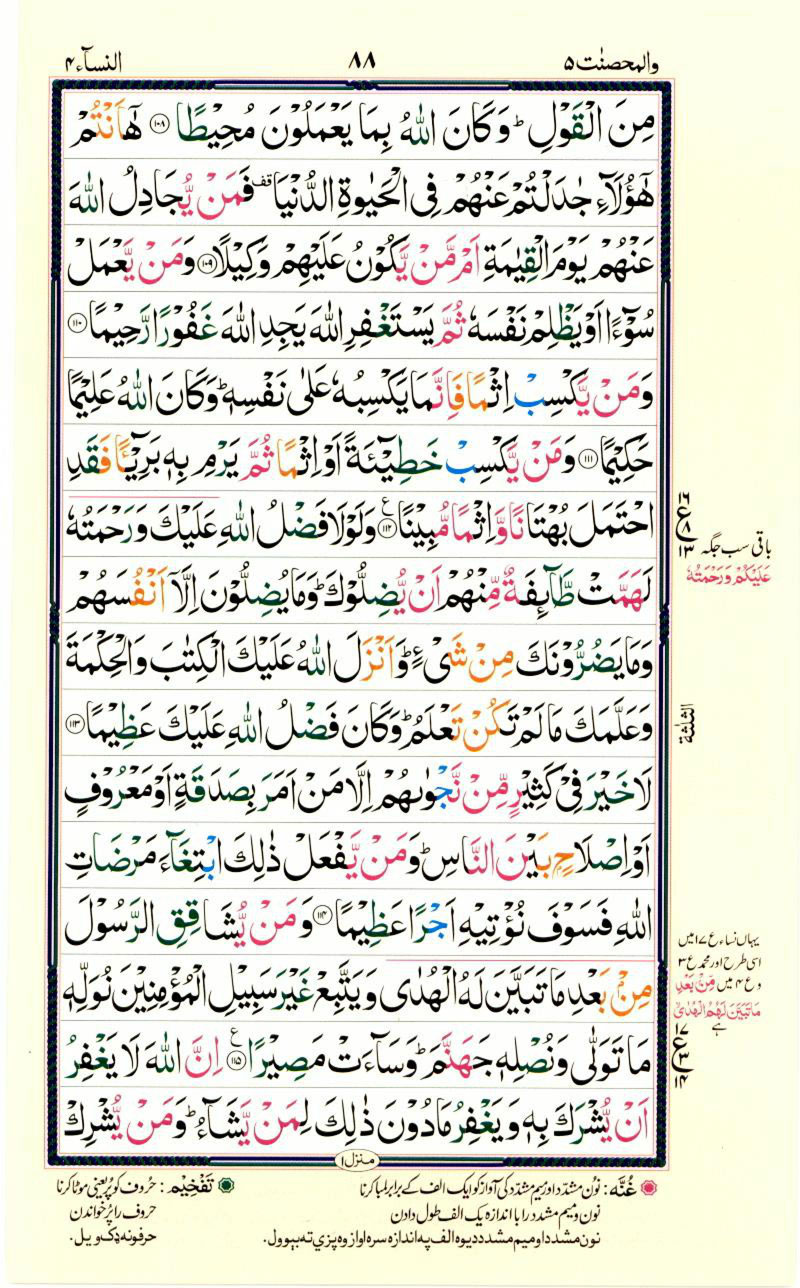 والمحصنٰت ۵
۸۸
النسآء ۴
مِنَ الْقَوْلِ ؕ وَكَانَ اللّٰهُ بِمَا يَعْمَلُوْنَ مُحِيْطًا ﴿۱۰۸﴾ هٰۤاَنْتُمْ
هٰۤؤُلَآءِ جٰدَلْتُمْ عَنْهُمْ فِى الْحَيٰوةِ الدُّنْيَا قف فَمَنْ يُّجَادِلُ اللّٰهَ
عَنْهُمْ يَوْمَ الْقِيٰمَةِ اَمْ مَّنْ يَّكُوْنُ عَلَيْهِمْ وَكِيْلًا ﴿۱۰۹﴾ وَمَنْ يَّعْمَلْ
سُوْٓءًا اَوْ يَظْلِمْ نَفْسَهٗ ثُمَّ يَسْتَغْفِرِ اللّٰهَ يَجِدِ اللّٰهَ غَفُوْرًا رَّحِيْمًا ﴿۱۱۰﴾
وَمَنْ يَّكْسِبْ اِثْمًا فَاِنَّمَا يَكْسِبُهٗ عَلٰى نَفْسِهٖ ؕ وَكَانَ اللّٰهُ عَلِيْمًا
حَكِيْمًا ﴿۱۱۱﴾ وَمَنْ يَّكْسِبْ خَطِيْٓئَةً اَوْ اِثْمًا ثُمَّ يَرْمِ بِهٖ بَرِيْٓئًا فَقَدِ
احْتَمَلَ بُهْتَانًا وَّاِثْمًا مُّبِيْنًا ﴿۱۱۲﴾ ع وَلَوْلَا فَضْلُ اللّٰهِ عَلَيْكَ وَرَحْمَتُهٗ
لَهَمَّتْ طَّآئِفَةٌ مِّنْهُمْ اَنْ يُّضِلُّوْكَ ؕ وَمَا يُضِلُّوْنَ اِلَّاۤ اَنْفُسَهُمْ
وَمَا يَضُرُّوْنَكَ مِنْ شَىْءٍ ؕ وَاَنْزَلَ اللّٰهُ عَلَيْكَ الْكِتٰبَ وَالْحِكْمَةَ
وَعَلَّمَكَ مَا لَمْ تَكُنْ تَعْلَمُ ؕ وَكَانَ فَضْلُ اللّٰهِ عَلَيْكَ عَظِيْمًا ﴿۱۱۳﴾
لَا خَيْرَ فِىْ كَثِيْرٍ مِّنْ نَّجْوٰىهُمْ اِلَّا مَنْ اَمَرَ بِصَدَقَةٍ اَوْ مَعْرُوْفٍ
اَوْ اِصْلَاحٍۭ بَيْنَ النَّاسِ ؕ وَمَنْ يَّفْعَلْ ذٰلِكَ ابْتِغَآءَ مَرْضَاتِ
اللّٰهِ فَسَوْفَ نُؤْتِيْهِ اَجْرًا عَظِيْمًا ﴿۱۱۴﴾ وَمَنْ يُّشَاقِقِ الرَّسُوْلَ
مِنْۢ بَعْدِ مَا تَبَيَّنَ لَهُ الْهُدٰى وَيَتَّبِعْ غَيْرَ سَبِيْلِ الْمُؤْمِنِيْنَ نُوَلِّهٖ
مَا تَوَلّٰى وَنُصْلِهٖ جَهَنَّمَ ؕ وَسَآءَتْ مَصِيْرًا ﴿۱۱۵﴾ ع اِنَّ اللّٰهَ لَا يَغْفِرُ
اَنْ يُّشْرَكَ بِهٖ وَيَغْفِرُ مَا دُوْنَ ذٰلِكَ لِمَنْ يَّشَآءُ ؕ وَمَنْ يُّشْرِكْ
منزل ۱
۱۶
ع ۸
۱۳
باقی سب جگہ
عَلَيْكُمْ وَرَحْمَتُهٗ
الثلثة
یہاں نساء ع ۱۷ میں
اسی طرح اور محمد ع ۳
و ع ۴ میں مِنْۢ بَعْدِ
مَا تَبَيَّنَ لَهُمُ الْهُدٰى
ہے
۱۷
ع ۳
۱۴
غُنَّه : نون مشدد اور میم مشدد کی آواز کو ایک الف کے برابر لمبا کرنا
نون و میم مشدد را با اندازہ یک الف طول دادن
نون مشدد او میم مشدد دیوه الف په اندازه سره اواز وه پزې ته بېوول.
تَفْخِيْم : حروف کو پُر یعنی موٹا کرنا
حروف را پُر خواندن
حرفونه ډک ویل.